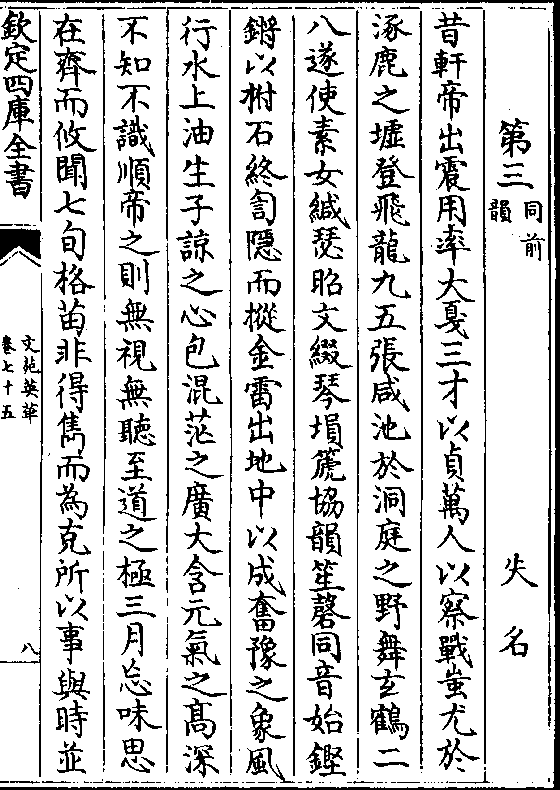 第三 同前韻 失名
昔軒帝出震用率大戛三才以貞萬人以察戰蚩尤於
涿鹿之墟登飛龍九五張咸池於洞庭之野舞玄鶴二
八遂使素女緘瑟昭文綴琴塤篪協韻笙磬同音始鏗
鏘以柎石終訇隱而摐金雷出地中以成奮豫之象風
行水上油生子諒之心包混茫之廣大含元氣之髙深
不知不識順帝之則無視無聽至道之極三月忘味思
在齊而攸聞七旬格苗非得雋而為克所以事與時並
欽定四庫全書
文苑英華
卷七十五
八